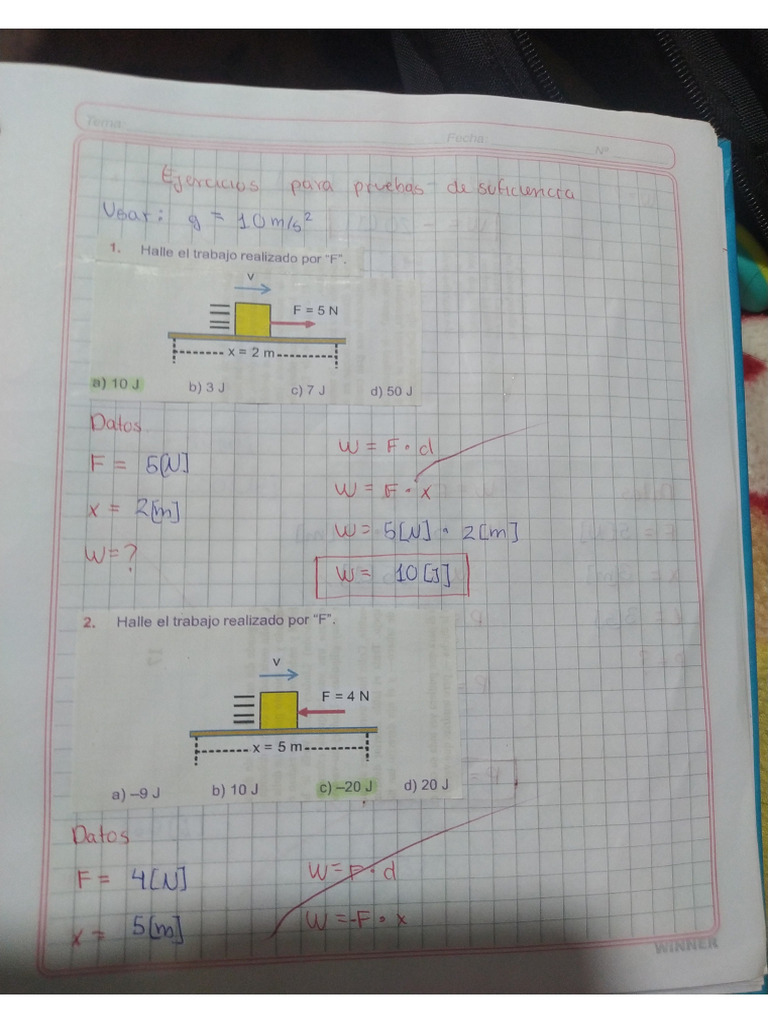 Tema:
Fecha:
Nº
Ejercicios para pruebas de suficiencia
Usar: g = 10 m/s²
1. Halle el trabajo realizado por "F".
v
F = 5 N
x = 2 m
a) 10 J b) 3 J c) 7 J d) 50 J
Datos
W = F · d
F = 5[N]
W = F · x
x = 2[m]
W = 5[N] · 2[m]
W = ?
W = 10[J]
2. Halle el trabajo realizado por "F".
v
F = 4 N
x = 5 m
a) –9 J b) 10 J c) –20 J d) 20 J
Datos
F = 4[N]
W = F · d
x = 5[m]
W = -F · x
WINNER